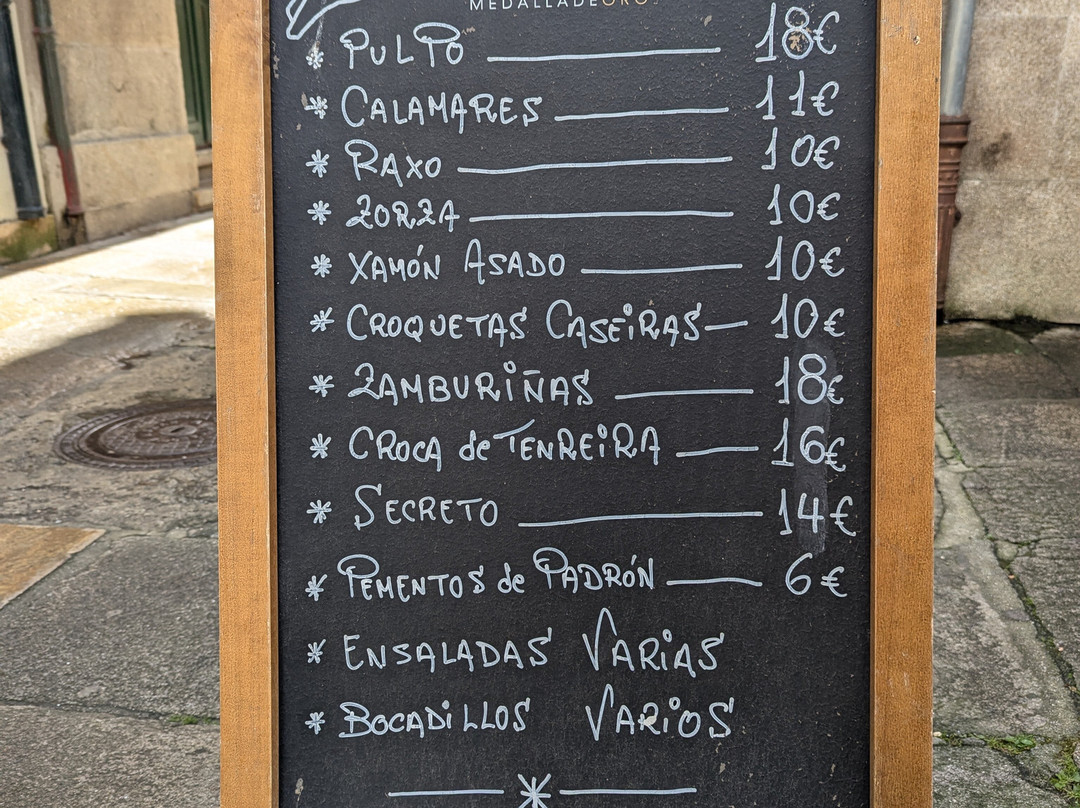 MEDALLADEORO
* PULPO 18€
* CALAMARES 11€
* RAXO 10€
* ZORZA 10€
* XAMÓN ASADO 10€
* CROQUETAS CASEIRAS 10€
* ZAMBURIÑAS 18€
* CROCA de TENREIRA 16€
* SECRETO 14€
* PEMENTOS de PADRÓN 6€
* ENSALADAS VARIAS
* BOCADILLOS VARIOS